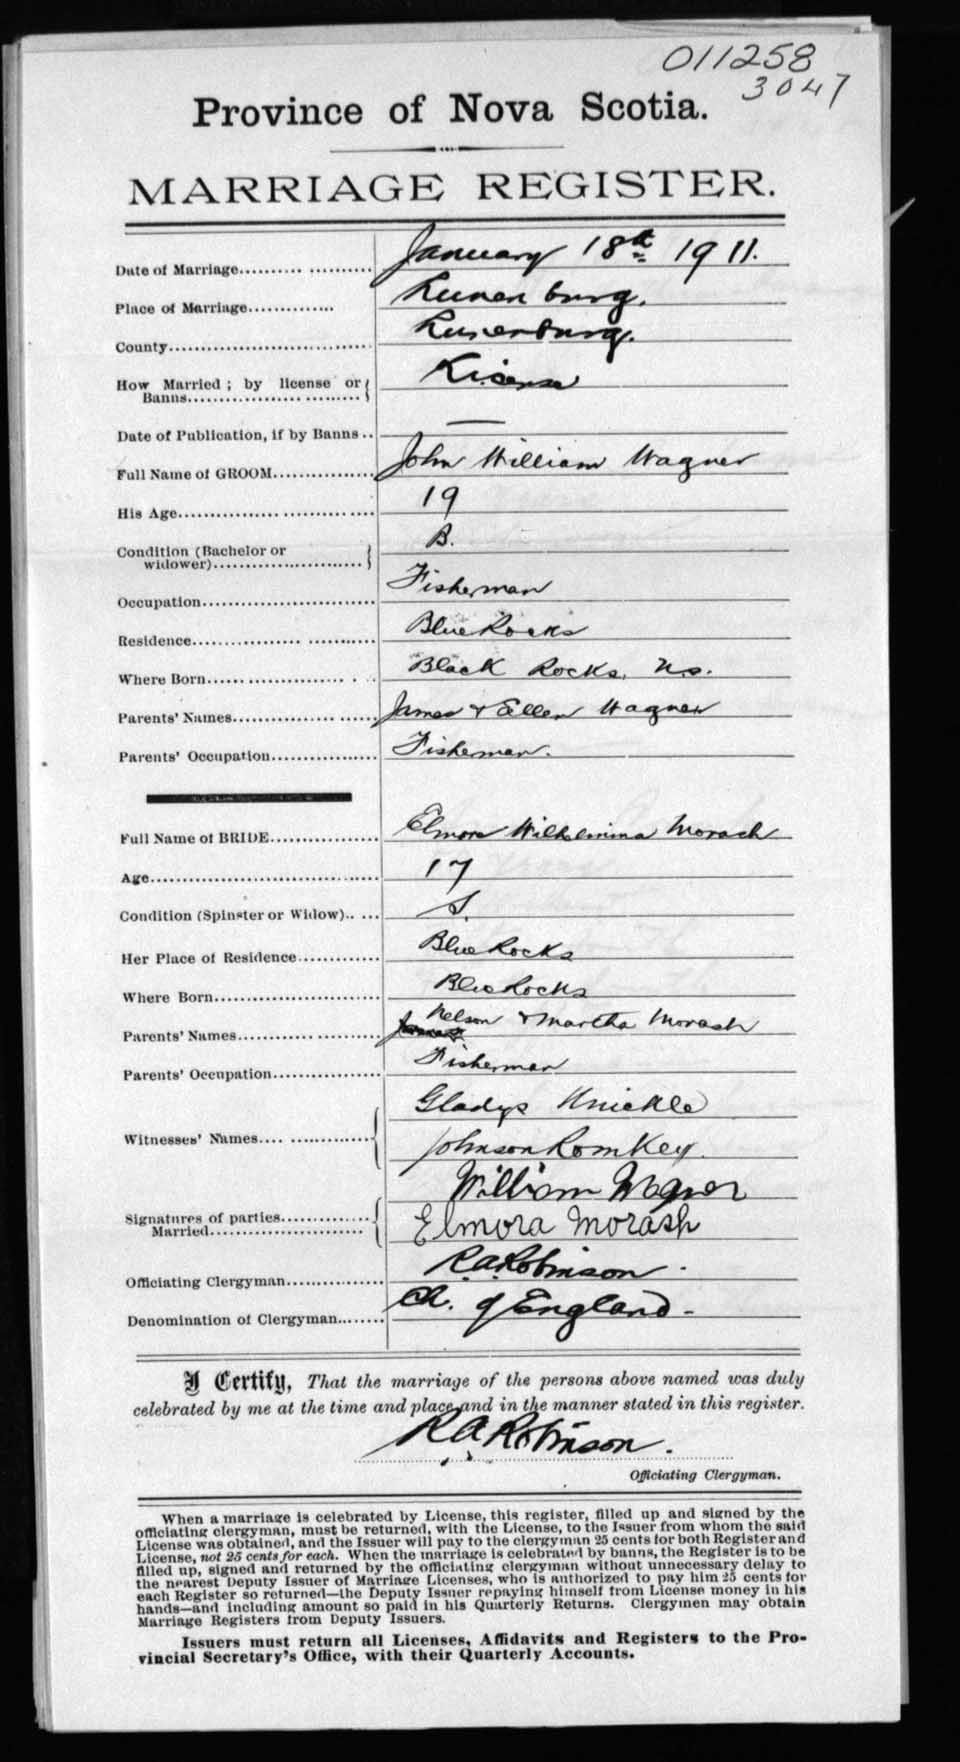 011258
3047
Province of Nova Scotia.
MARRIAGE REGISTER.
Date of Marriage.......... ........... January 18th 1911.
Place of Marriage............. Lunenburg.
County............................... Lunenburg.
How Married; by license or License
Banns.............................
Date of Publication, if by Banns .. —
Full Name of GROOM............... John William Wagner
His Age............................... 19
Condition (Bachelor or B.
widower)..........................
Occupation........................... Fisherman
Residence............................ Blue Rocks
Where Born........................... Black Rocks, N.S.
Parents' Names....................... James & Ellen Wagner
Parents' Occupation.................. Fisherman.
Full Name of BRIDE................ Elmora Wilhelmina Morash
Age................................... 17
Condition (Spinster or Widow)..... S.
Her Place of Residence............. Blue Rocks
Where Born........................... Blue Rocks
Parents' Names....................... Nelson & Martha Morash
Parents' Occupation.................. Fisherman
Gladys Knickle
Witnesses' Names.................... Johnson Romkey.
William Wagner
Signatures of parties............... Elmora Morash
Married............................
Officiating Clergyman............... R.A. Robinson.
Denomination of Clergyman........ Ch. of England-
I Certify, That the marriage of the persons above named was duly
celebrated by me at the time and place and in the manner stated in this register.
R A Robinson.
Officiating Clergyman.
When a marriage is celebrated by License, this register, filled up and signed by the
officiating clergyman, must be returned, with the License, to the Issuer from whom the said
License was obtained, and the Issuer will pay to the clergyman 25 cents for both Register and
License, not 25 cents for each. When the marriage is celebrated by banns, the Register is to be
filled up, signed and returned by the officiating clergyman without unnecessary delay to
the nearest Deputy Issuer of Marriage Licenses, who is authorized to pay him 25 cents for
each Register so returned—the Deputy Issuer repaying himself from License money in his
hands—and including amount so paid in his Quarterly Returns. Clergymen may obtain
Marriage Registers from Deputy Issuers.
Issuers must return all Licenses, Affidavits and Registers to the Pro-
vincial Secretary's Office, with their Quarterly Accounts.